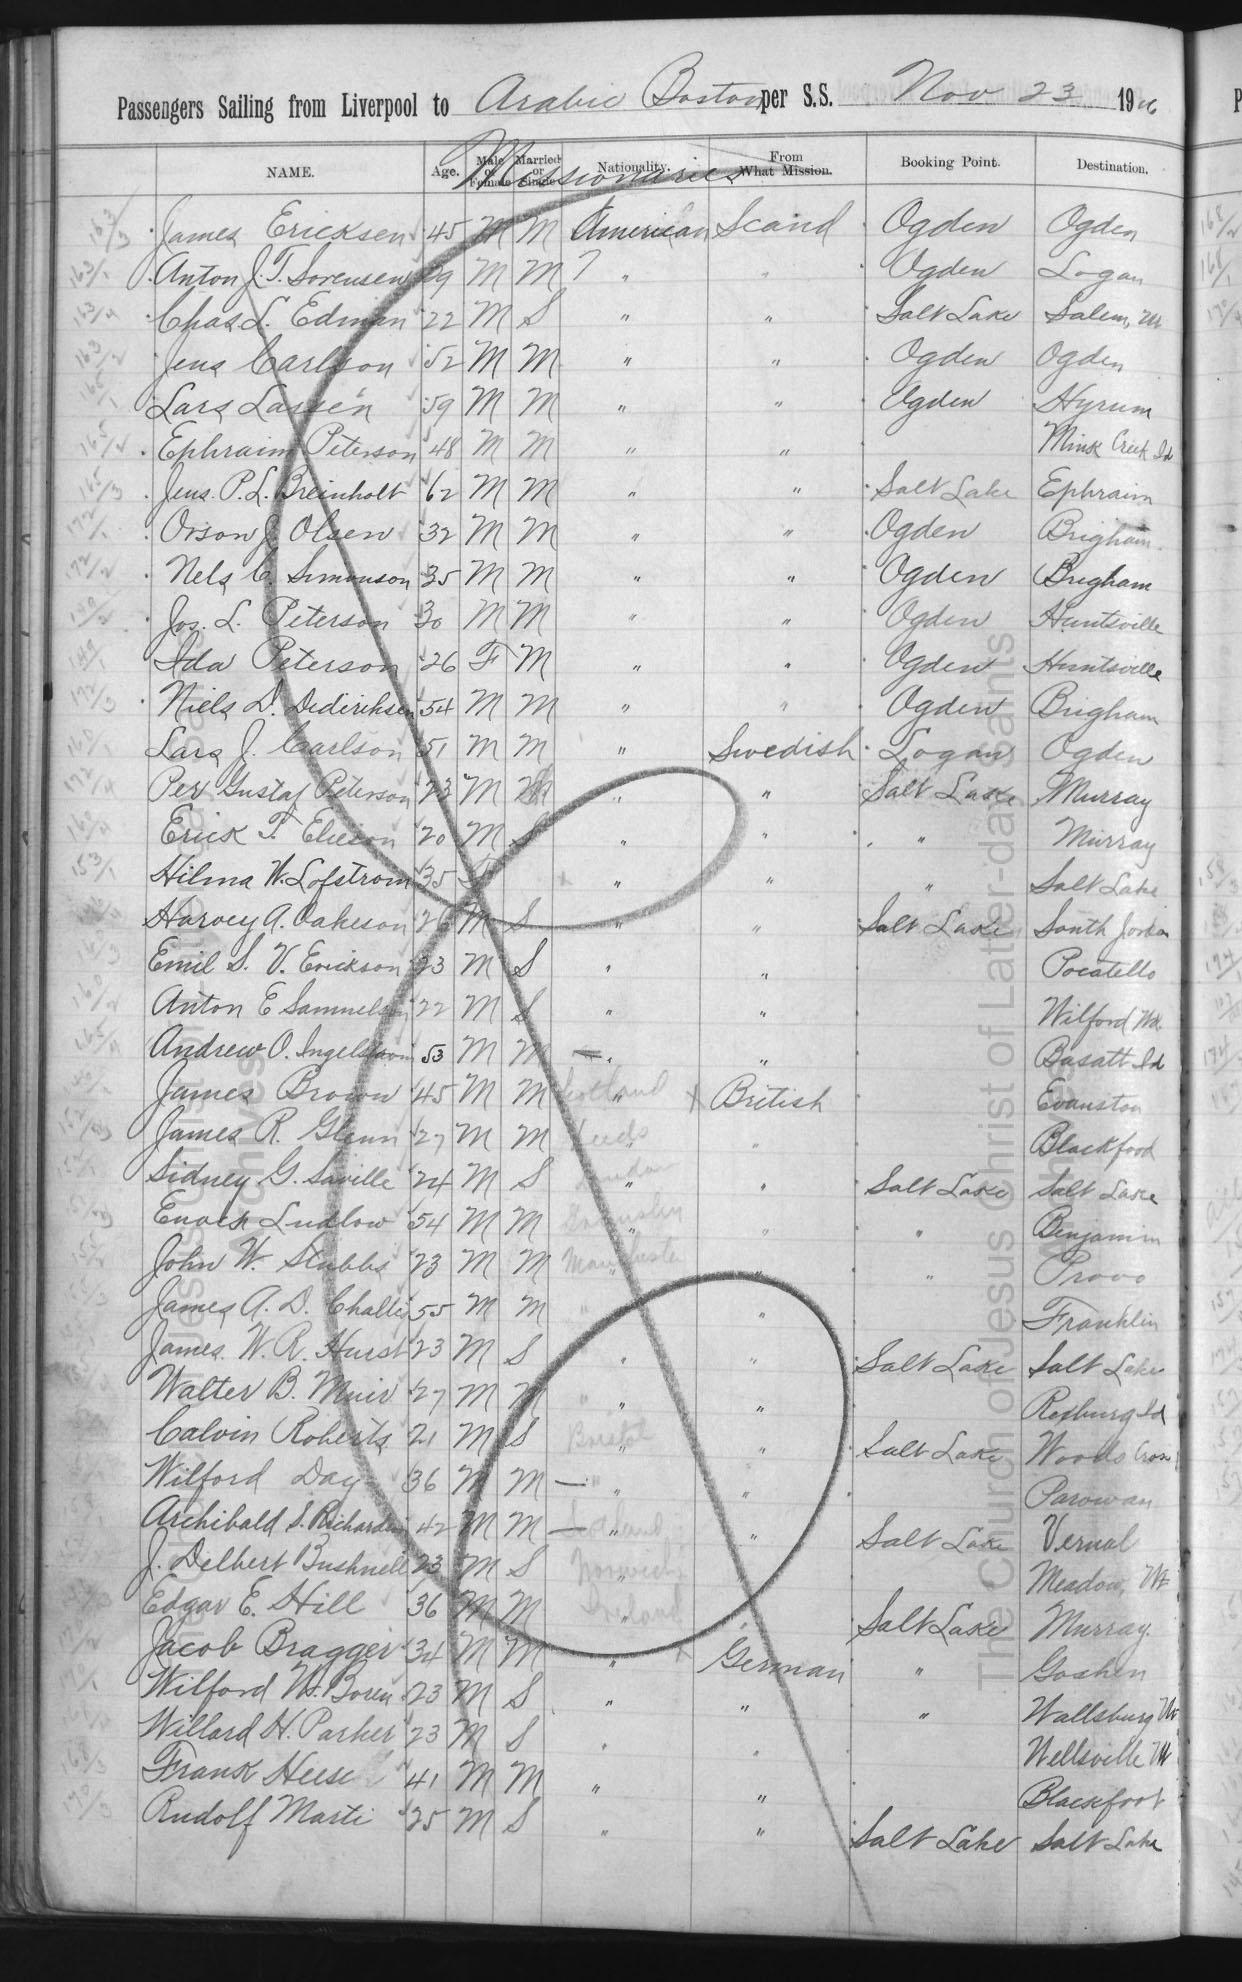 Passengers Sailing from Liverpool to Arabic Boston per S.S. Nov 23 1906
Missionaries
NAME. Age. Male or Female Married or Single Nationality. From What Mission. Booking Point. Destination.
James Ericksen 45 M M American Scand Ogden Ogden
Anton J. T. Sorensen 29 M M " " Ogden Logan
Chas. L. Edman 22 M S " " Salt Lake Salem, Ut
Jens Carlson 52 M M " " Ogden Ogden
Lars Lassen 59 M M " " Ogden Hyrum
Ephraim Peterson 48 M M " " Mink Creek Id
Jens. P. L. Breinholt 62 M M " " Salt Lake Ephraim
Orson J. Olsen 32 M M " " Ogden Brigham
Nels C. Simonson 35 M M " " Ogden Brigham
Jos. L. Peterson 30 M M " " Ogden Huntsville
Ida Peterson 26 F M " " Ogden Huntsville
Niels D. Dediriksen 54 M M " " Ogden Brigham
Lars J. Carlson 51 M M " Swedish Logan Ogden
Per Gustaf Peterson 23 M " " Salt Lake Murray
Erick T. Elieson 20 M S " " " Murray
Hilma W. Lofstrom 35 F " " " Salt Lake
Harvey A. Oakeson 26 M S " " Salt Lake South Jordan
Emil S. V. Erickson 23 M S " " Pocatello
Anton E Samuelson 22 M S " " Wilford
Andrew O. Ingelstrom 53 M M " " Basalt Id
James Brown 45 M M Scotland " British Evanston
James R. Glenn 27 M M Leeds " Blackfood
Sidney G. Saville 24 M S London " " Salt Lake Salt Lake
Enoch Ludlow 54 M M Grimsby " " " Benjamin
John W. Stubbs 23 M M Manchester " " " Provo
James A. D. Challis 55 M M " " Franklin
James. W. R. Hurst 23 M S " " Salt Lake Salt Lake
Walter B. Muir 27 M M " " Rexburg Id
Calvin Roberts 21 M S Bristol " " Salt Lake Woods Cross
Wilford Day 36 M M — " " Parowan
Archibald S. Richardson 42 M M — Scotland " " Salt Lake Vernal
J. Delbert Bushnell 23 M S Norwich " Meadow, Ut
Edgar E. Hill 36 M M Ireland " " Salt Lake Murray.
Jacob Bragger 34 M M " German " Goshen
Wilford W. Boren 23 M S " " " Wallsburg Ut
Willard H. Parker 23 M S " " Wellsville Ut
Frank Heese 41 M M " " Blackfoot
Rudolf Marti 25 M S " " Salt Lake Salt Lake
The Church of Jesus Christ of Latter-day Saints
Archives